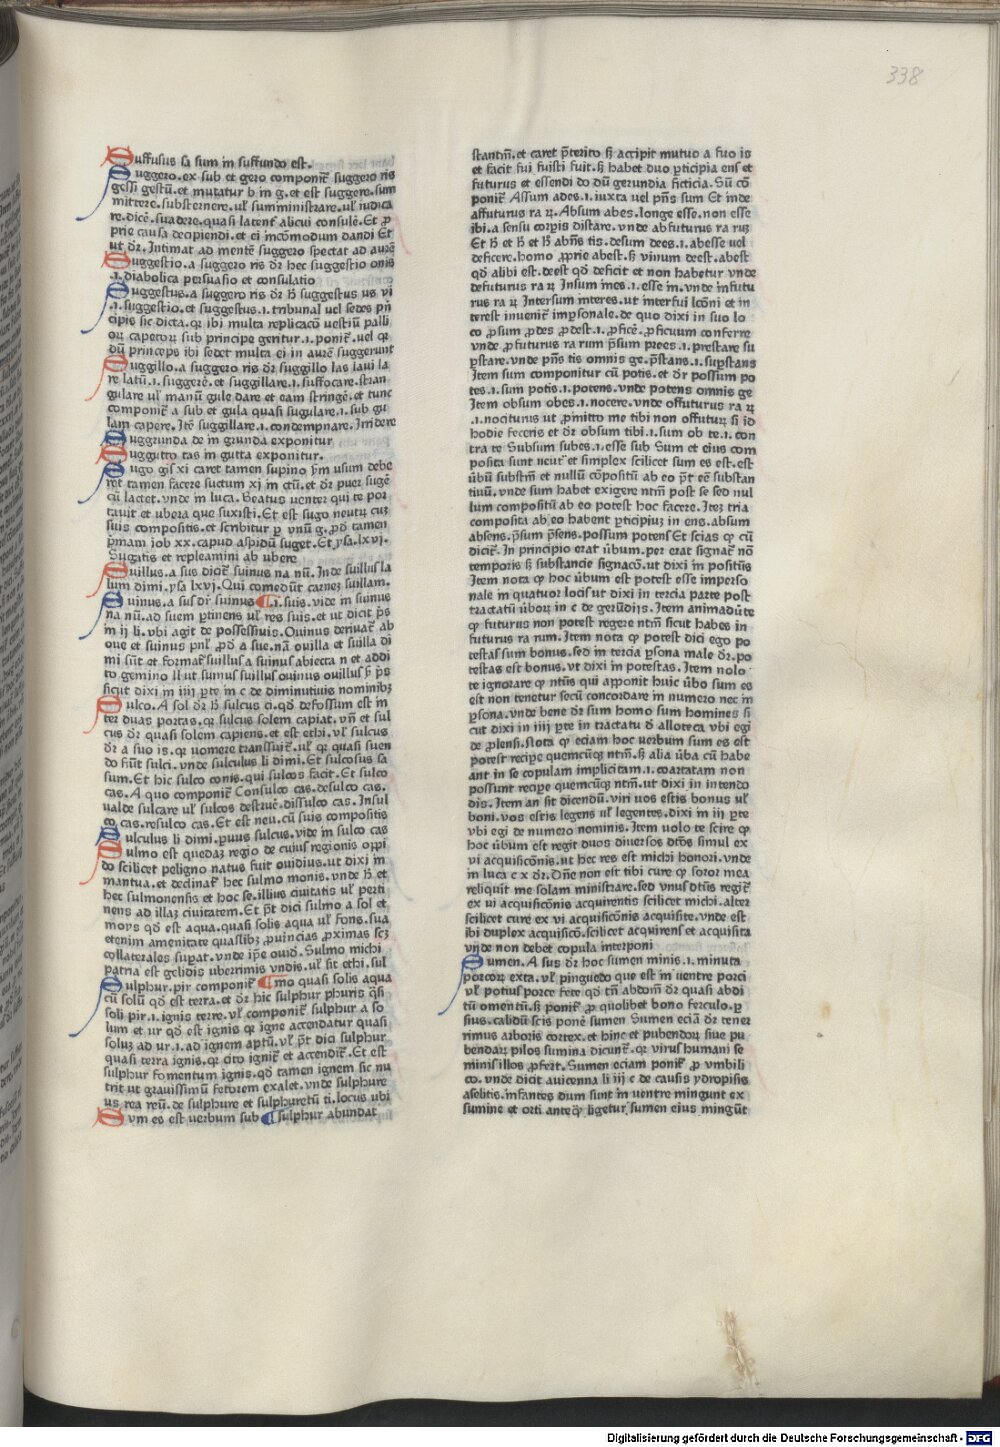 338
Suffusus sa sum in suffundo est.
Suggero. ex sub et gero componit᷑ suggero ris
gessi gestū. et mutatur b in g. et est suggere. sum
mittere. substernere. ul᷑ sumministrare. ul᷑ iudica
re. dicē. suadere. quasi latent᷑ alicui consulē. Et ꝓ
prie causa decipiendi. et ei incōmodum dandi Et
ut dr̄. Intimat ad mentē suggero spectat ad aurē
Suggestio. a suggero ris dr̄ hec suggestio onis
.i. diabolica persuasio et consulatio
Suggestus. a suggero ris dr̄ ħ suggestus us ui
.i. suggestio. et suggestus .i. tribunal uel sedes pn̄
cipis sic dicta. qr ibi multa replicacō uestiū palli
oꝝ capetoꝝ sub principe gentur .i. ponit᷑. uel qr
dū princeps ibi sedet multa ei in aurē suggerunt
Suggillo. a suggero ris dr̄ suggillo las laui la
re latū .i. suggerē. et suggillare .i. suffocare. stran
gulare ul᷑ manū gule dare et eam stringē. et tunc
componit᷑ a sub et gula quasi sugulare .i. sub gu
lam capere. Itē suggillare .i. condempnare. Irridere
Suggrunda de in grunda exponitur
Suggutto tas in gutta exponitur.
Sugo gis xi caret tamen supino ẜm usum debe
ret tamen facere suctum xi in ctū. et dr̄ puer sugē
cū lactet. vnde in luca. Beatus uenter qui te por
tauit et ubera que suxisti. Et est sugo neutꝝ cuꝫ
suis compositis. et scribitur ꝑ vnū g. ꝓd tamen
pn̄mam iob xx. capud aspidū suget. Et ysa. lxvj.
Sugatis et repleamini ab ubere
Suillus. a sus dicit᷑ suinus na nū. Inde suillus la
lum dimi. ysa lxvj. Qui comedūt carneꝫ suillam.
Suinus. a sus dr̄ suinus ¶ .i. suis. vide in suinus
na nū. ad suem ꝑtinens ul᷑ res suis. et ut dicit pr̄s
in ij li. vbi agit de possessiuis. Ouinus deriuat᷑ ab
oue et suinus pnl᷑ ꝓd a sue. nā ouilla et suilla di
mi sūt et format᷑ suillus a suinus abiecta n et addi
to gemino ll ut suinus suillus ouinus ouillus ẜ pr̄s
ficut dixi in iiij ꝑte in c de diminutiuis nominibꝫ
Sulco. A sol dr̄ ħ sulcus ci. qd̄ defossum est in
ter duas portas. qr sulcus solem capiat. vn̄ et sul
cus dr̄ quasi solem capiens. et est ethi. vl᷑ sulcus
dr̄ a suo is. qr uomere transsuit᷑. ul᷑ qr quasi suen
do fiūt sulci. vnde sulculus li dimi. Et sulcosus sa
sum. Et hic sulco conis. qui sulcos facit. Et sulco
cas. A quo componit᷑ Consulco cas. desulco cas.
ualde sulcare ul᷑ sulcos destruē. dissulco cas. Insul
co cas. resulco cas. Et est neu. cū suis compositis
Sulculus li dimi. ꝑuus sulcus. vide in sulco cas
Sulmo est quedaꝫ regio de cuius regionis oppi
do scilicet peligno natus fuit ouidius. ut dixi in
mantua. et declinat᷑ hec sulmo monis. vnde ħ et
hec sulmonensis et hoc se. illius ciuitatis ul᷑ perti
nens ad illaꝫ ciuitatem. Et pt̄ dici sulmo a sol et
moys qd̄ est aqua. quasi solis aqua ul᷑ fons. sua
etenim amenitate quaslibꝫ ꝓuincias ꝓximas scꝫ
collaterales suꝑat. vnde ip̄e ouid̄. Sulmo michi
patria est gelidis uberrimis vndis. ul᷑ sit ethi. sul
Sulphur. pir componit᷑ ¶ mo quasi solis aqua
cū solū qd̄ est terra. et dr̄ hic sulphur phuris q̄si
soli pir .i. ignis terre. vl᷑ componit᷑ sulphur a so
lum et ur qd̄ est ignis qr igne accendatur quasi
soluꝫ ad ur .i. ad ignem aptū. vl᷑ pt̄ dici sulphur
quasi terra ignis. qr cito ignit᷑ et accendit᷑. Et est
sulphur fomentum ignis. qd̄ tamen ignem sic nu
trit ut grauissimū fetorem exalet. vnde sulphure
us rea reū. de sulphure et sulphuretū ti. locus ubi
Sum es est uerbum sub ¶ sulphur abundat
stantiū. et caret pr̄terito sꝫ accipit mutuo a fuo is
et facit fui fuisti fuit. sꝫ habet duo ꝑticipia ens et
futurus et essendi do dū gerundia ficticia. Sū cō
ponit᷑ Assum ades .i. iuxta uel pn̄s sum Et inde
affuturus ra ꝝ. Absum abes. longe esse. non esse
ibi. a sensu corꝑis distare. vnde abfuturus ra ruꝫ
Et ħ et ħ et ħ abn̄s tis. desum dees .i. abesse uel
deficere. homo ꝓprie abest. sꝫ vinum deest. abest
qd̄ alibi est. deest qd̄ deficit et non habetur vnde
defuturus ra ꝝ Insum ines .i. esse in. vnde infutu
rus ra ꝝ Intersum interes. ut interfui lcōni et in
terest inuenit᷑ inꝑsonale. de quo dixi in suo lo
co ꝓsum ꝓdes ꝓdest .i. ꝓficē. ꝓficuum conferre
vnde ꝓfuturus ra rum p̄sum prees .i. prestare su
ꝑstare. vnde pn̄s tis omnis ge. p̄stans .i. suꝑstans
Item sum componitur cū potis. et dr̄ possum po
tes .i. sum potis .i. potens. vnde potens omnis ge
Item obsum obes .i. nocere. vnde offuturus ra ꝝ
.i. nociturus ut ꝓmitto me tibi non offutuꝝ si id
hodie feceris et dr̄ obsum tibi .i. sum ob te .i. con
tra te Subsum subes .i. esse sub Sum et eius com
posita sunt neut᷑ et simplex scilicet sum es est. est
ūbū substm̄ et nullū cōpositū ab eo pt̄ eē substan
tiuū. vnde sum habet exigere ntm̄ post se sed nul
lum compositū ab eo potest hoc facere. Iteꝫ tria
composita ab eo habent ꝑticipiuꝫ in ens. absum
absens. p̄sum p̄sens. possum potens Et scias ꝙ cū
dicit᷑. In principio erat ūbum. per erat signat᷑ nō
temporis sꝫ substancie signacō. ut dixi in positiūs
Item nota ꝙ hoc ūbum est potest esse imperso
nale in quatuor locis ut dixi in tercia parte post
tractatū ūboꝝ in c de gerūdijs. Item animadūte
ꝙ futurus non potest regere ntm̄ sicut habes in
futurus ra rum. Item nota ꝙ potest dici ego po
testas sum bonus. sed in tercia ꝑsona male dr̄. po
testas est bonus. vt dixi in potestas. Item nolo
te ignorare ꝙ ntūs qui apponit huic ūbo sum es
est non tenetur secū concordare in numero nec in
ꝑsona. vnde bene dr̄ sum homo sum homines si
cut dixi in iiij ꝑte in tractatu d̄ alloteca vbi egi
de ꝓlensi. Nota ꝙ eciam hoc uerbum sum es est
potest recipe quemcūqꝫ ntm̄. sꝫ alia ūba cū habe
ant in se copulam implicitam .i. coartatam non
possunt recipe quemcūqꝫ ntm̄. ut dixi in intendo
dis. Item an sit dicendū. viri uos estis bonus ul᷑
boni. vos estis legens ul᷑ legentes. dixi in iij ꝑte
vbi egi de numero nominis. Item uolo te scire ꝙ
hoc ūbum est regit duos diuersos dt̄os simul ex
vi acquisicōnis. ut hec res est michi honori. vnde
in luca c x dr̄. Dn̄e non est tibi cure ꝙ soror mea
reliquit me solam ministrare. sed vnus dt̄us regit᷑
ex ui acquisicōnis acquirentis scilicet michi. alter
scilicet cure ex vi acquisicōnis acquisite. vnde est
ibi duplex acquisicō. scilicet acquirens et acquisita
vnde non debet copula interponi
Sumen. A sus dr̄ hoc sumen minis .i. minuta
porcoꝝ exta. vl᷑ pinguedo que est in uentre porci
ul᷑ potius porce fete qd̄ tn̄ abdom̄ dr̄ quasi abdi
tū omentū. sꝫ ponit᷑ ꝓ quolibet bono ferculo. ꝑ
sius. calidū scis ponē sumen Sumen eciā dr̄ tener
rimus arboris cortex. et hinc et pubendoꝝ siue pu
bendaꝝ pilos sumina dicunt᷑. qr virus humani se
minis illos ꝓfert. Sumen eciam ponit᷑ ꝓ vmbili
co. vnde dicit auicenna li iij c de causis ydropisis
aselitis. infantes dum sunt in uentre mingunt ex
sumine et orti anteqꝫ ligetur sumen eius mingūt
Digitalisierung gefördert durch die Deutsche Forschungsgemeinschaft - DFG